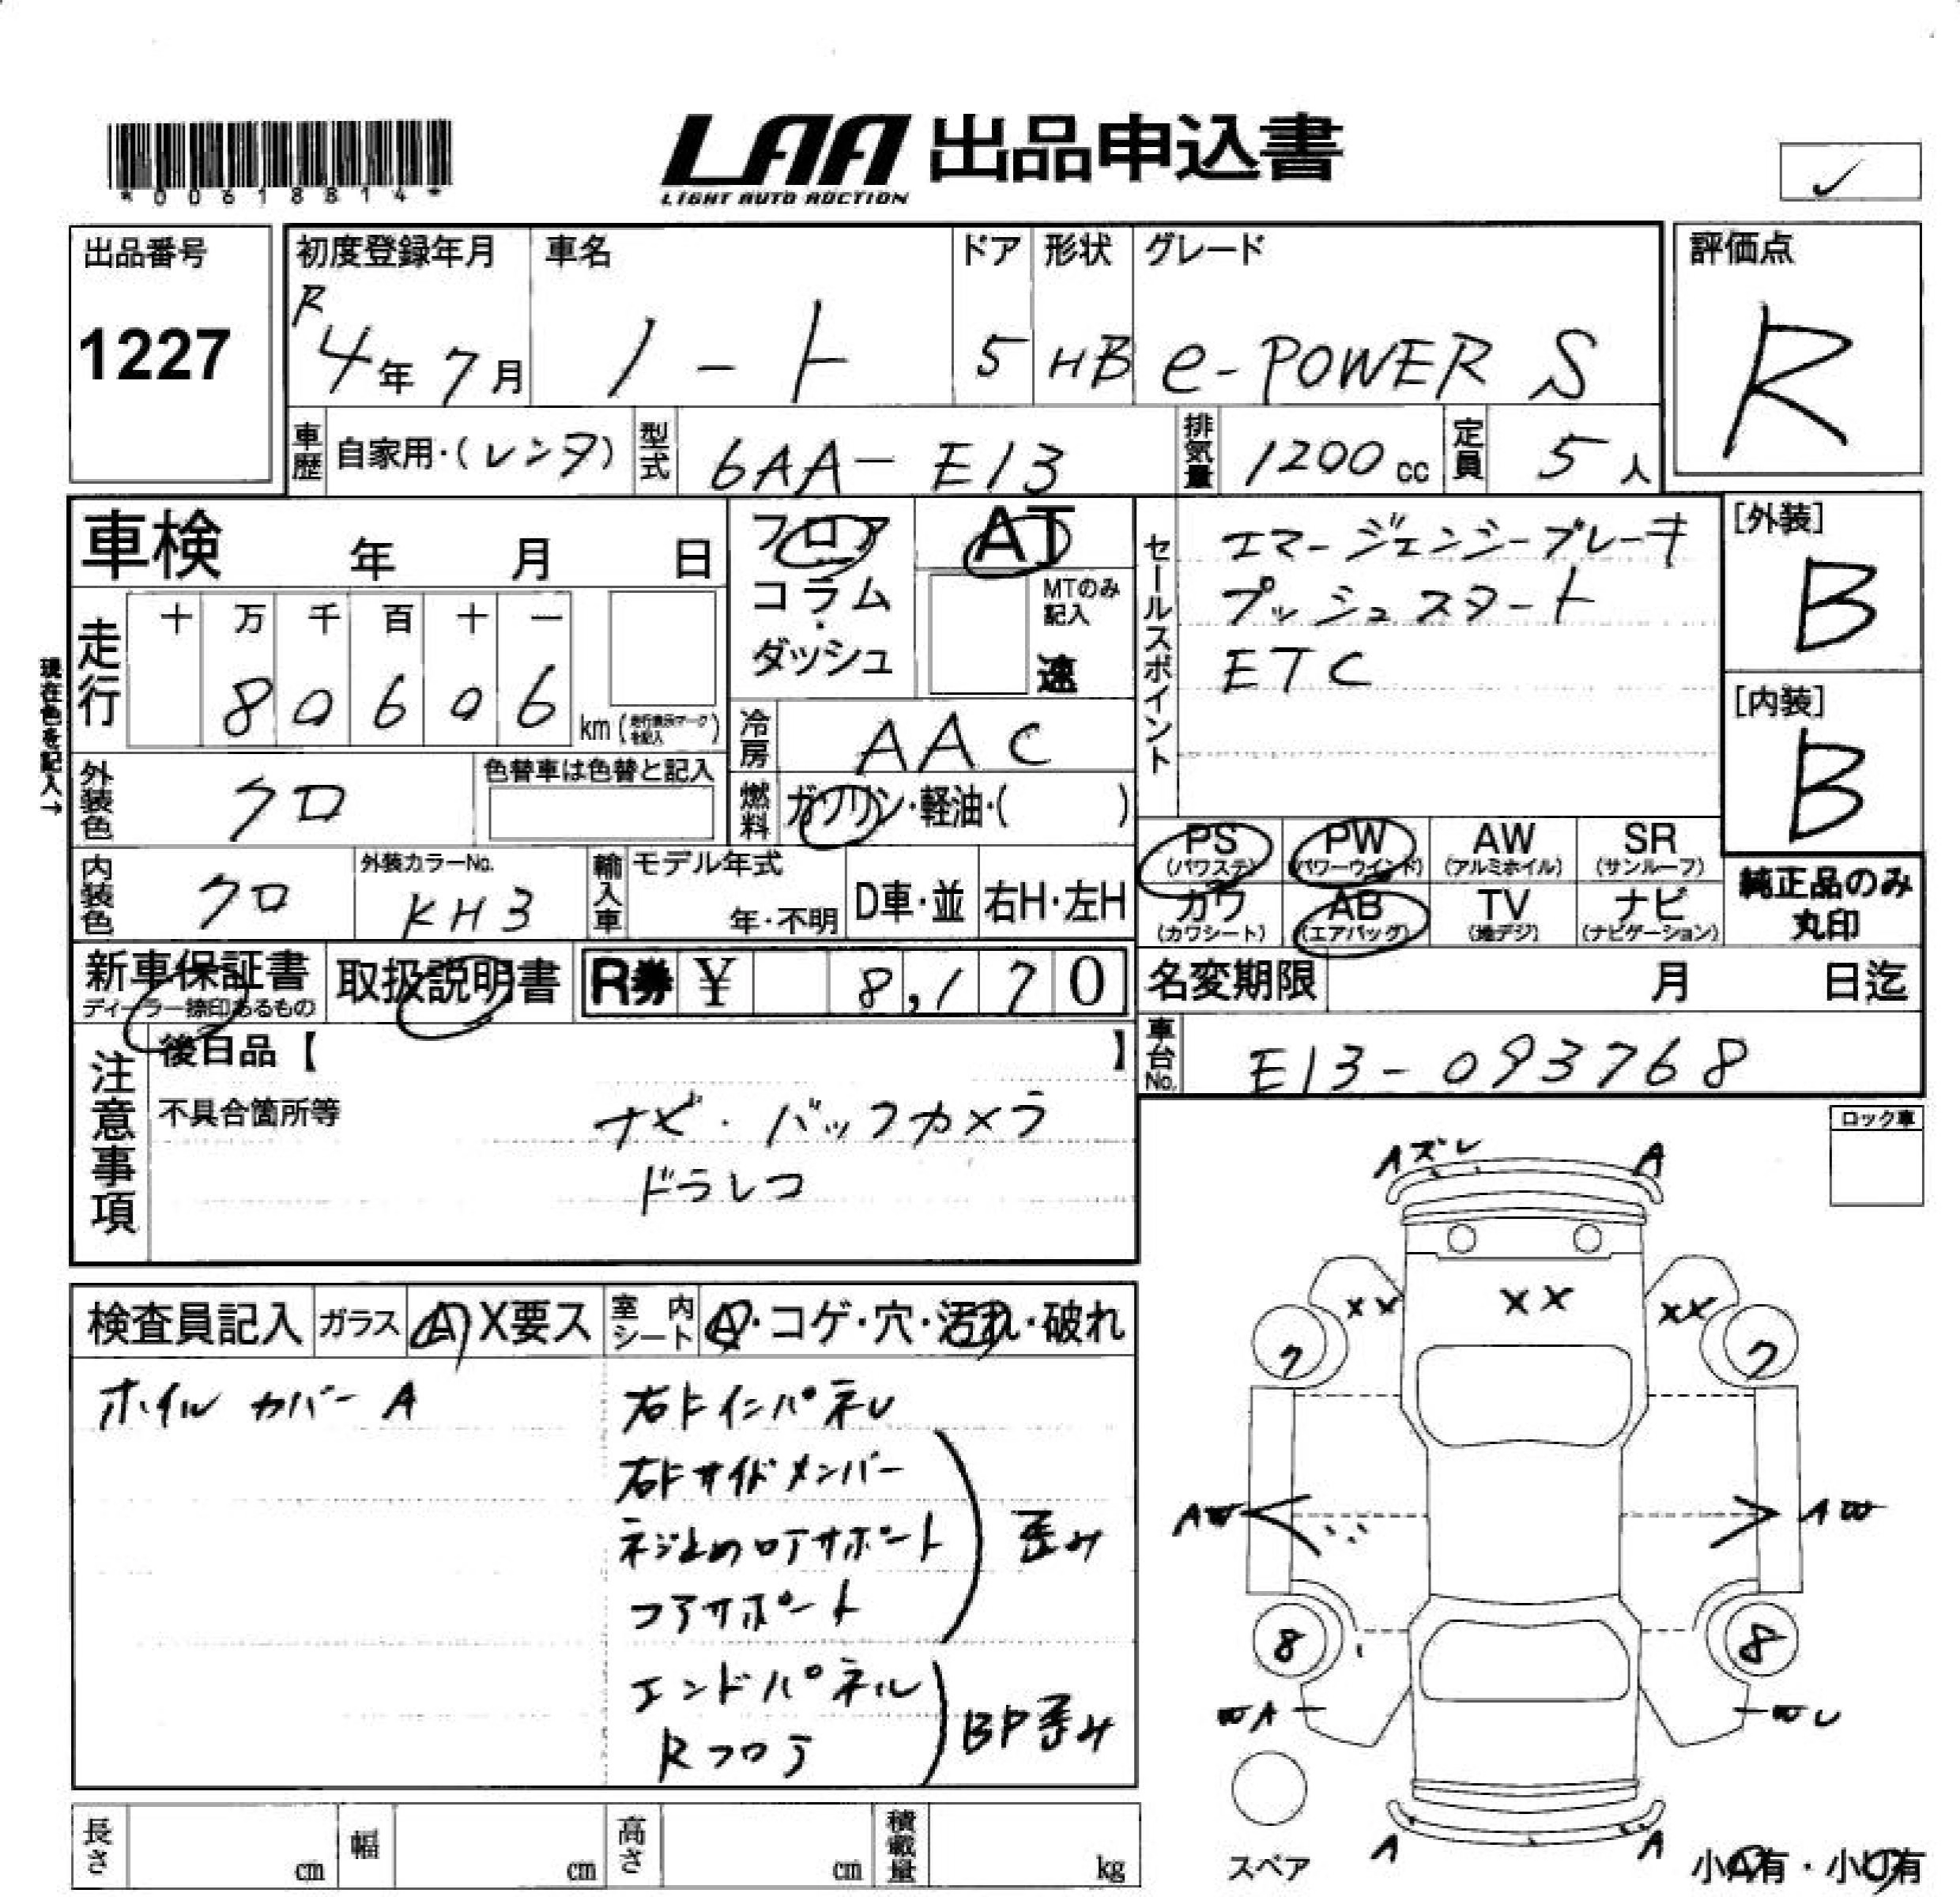 *00618814*
LAA 出品申込書
LIGHT AUTO AUCTION
出品番号
1227
初度登録年月
R4年7月
車名
ノート
ドア
5
形状
HB
グレード
e-POWER S
評価点
R
車歴
自家用・(レンタ)
型式
6AA-E13
排気量
1200cc
定員
5人
車検 年 月 日
フロア
コラム
ダッシュ
AT
MTのみ記入
速
セールスポイント
エマージェンシーブレーキ
プッシュスタート
ETC
[外装]
B
[内装]
B
現在色を記入→
走行
十 万 千 百 十 一
8 0 6 0 6
km
冷房
AAC
外装色
クロ
色替車は色替と記入
燃料
ガソリン・軽油・( )
PS
(パワステ)
PW
(パワーウインド)
AW
(アルミホイル)
SR
(サンルーフ)
内装色
クロ
外装カラーNo.
KH3
輸入車
モデル年式
年・不明
D車・並
右H・左H
カワ
(カワシート)
AB
(エアバッグ)
TV
(地デジ)
ナビ
(ナビゲーション)
純正品のみ
丸印
新車保証書
ディーラー捺印あるもの
取扱説明書
R券 ¥ 8,170
名変期限 月 日迄
車台No.
E13-093768
注意事項
後日品【 】
不具合箇所等
ナビ・バックカメラ
ドラレコ
ロック車
検査員記入
ガラス
A X要ス
室内シート
A・コゲ・穴・汚れ・破れ
ホイルカバーA
右FインパネU
右Fサイドメンバー
ネジ止めロアサポート
コアサポート
歪み
エンドパネル
Rフロア
BP歪み
Aズレ
A
XX
XX
XX
7
7
AW
AW
8
8
WA
WU
A
A
スペア
小A有・小U有
長さ
cm
幅
cm
高さ
cm
積載量
kg